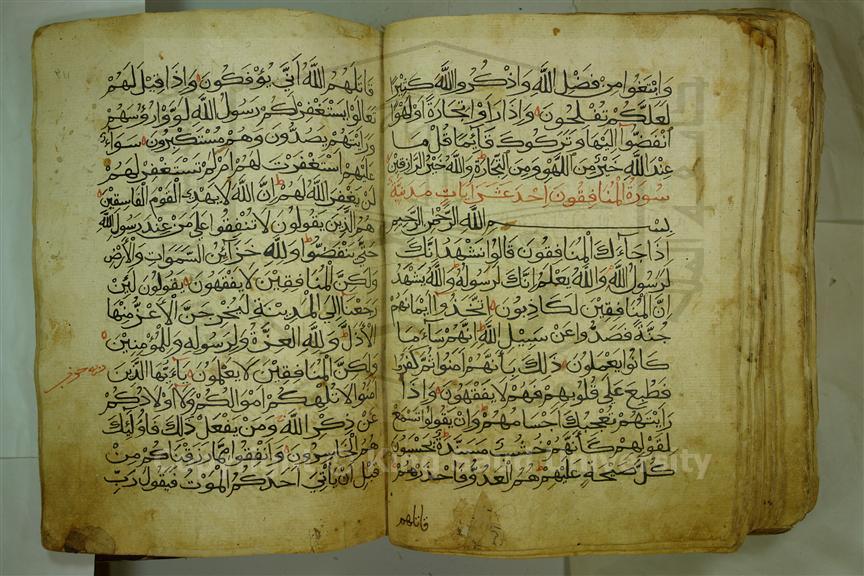 وابتغوا من فضل الله واذكروا الله كثيرا
لعلكم تفلحون واذا راوا تجارة او لهوا
انفضوا اليها وتركوك قايما قل ما
عند الله خير من اللهو ومن التجارة والله خير الرازقين
سورة المنافقون احد عشر ايات مدنية
بسم الله الرحمن الرحيم
اذا جاءك المنافقون قالوا نشهد انك
لرسول الله والله يعلم انك لرسوله والله يشهد
ان المنافقين لكاذبون اتخذوا ايمانهم
جنة فصدوا عن سبيل الله انهم ساء ما
كانوا يعملون ذلك بانهم امنوا ثم كفروا
فطبع على قلوبهم فهم لا يفقهون واذا
رايتهم تعجبك اجسامهم وان يقولوا تسمع
لقولهم كانهم خشب مسندة يحسبون
كل صيحة عليهم هم العدو فاحذرهم
قاتلهم
قاتلهم الله انى يؤفكون واذا قيل لهم
تعالوا يستغفر لكم رسول الله لووا رؤسهم
ورايتهم يصدون وهم مستكبرون سواء
عليهم استغفرت لهم ام لم تستغفر لهم
لن يغفر الله لهم ان الله لا يهدى القوم الفاسقين
هم الذين يقولون لا تنفقوا على من عند رسول الله
حتى ينفضوا ولله خزاين السموات والارض
ولكن المنافقين لا يفقهون يقولون لين
رجعنا الى المدينة ليخرجن الاعز منها
الاذل ولله العزة ولرسوله وللمؤمنين
ولكن المنافقين لا يعلمون ياءيها الذين
امنوا لا تلهكم اموالكم ولا اولادكم
عن ذكر الله ومن يفعل ذلك فاوليك
هم الخاسرون وانفقوا مما رزقناكم من
قبل ان ياتي احدكم الموت فيقول رب